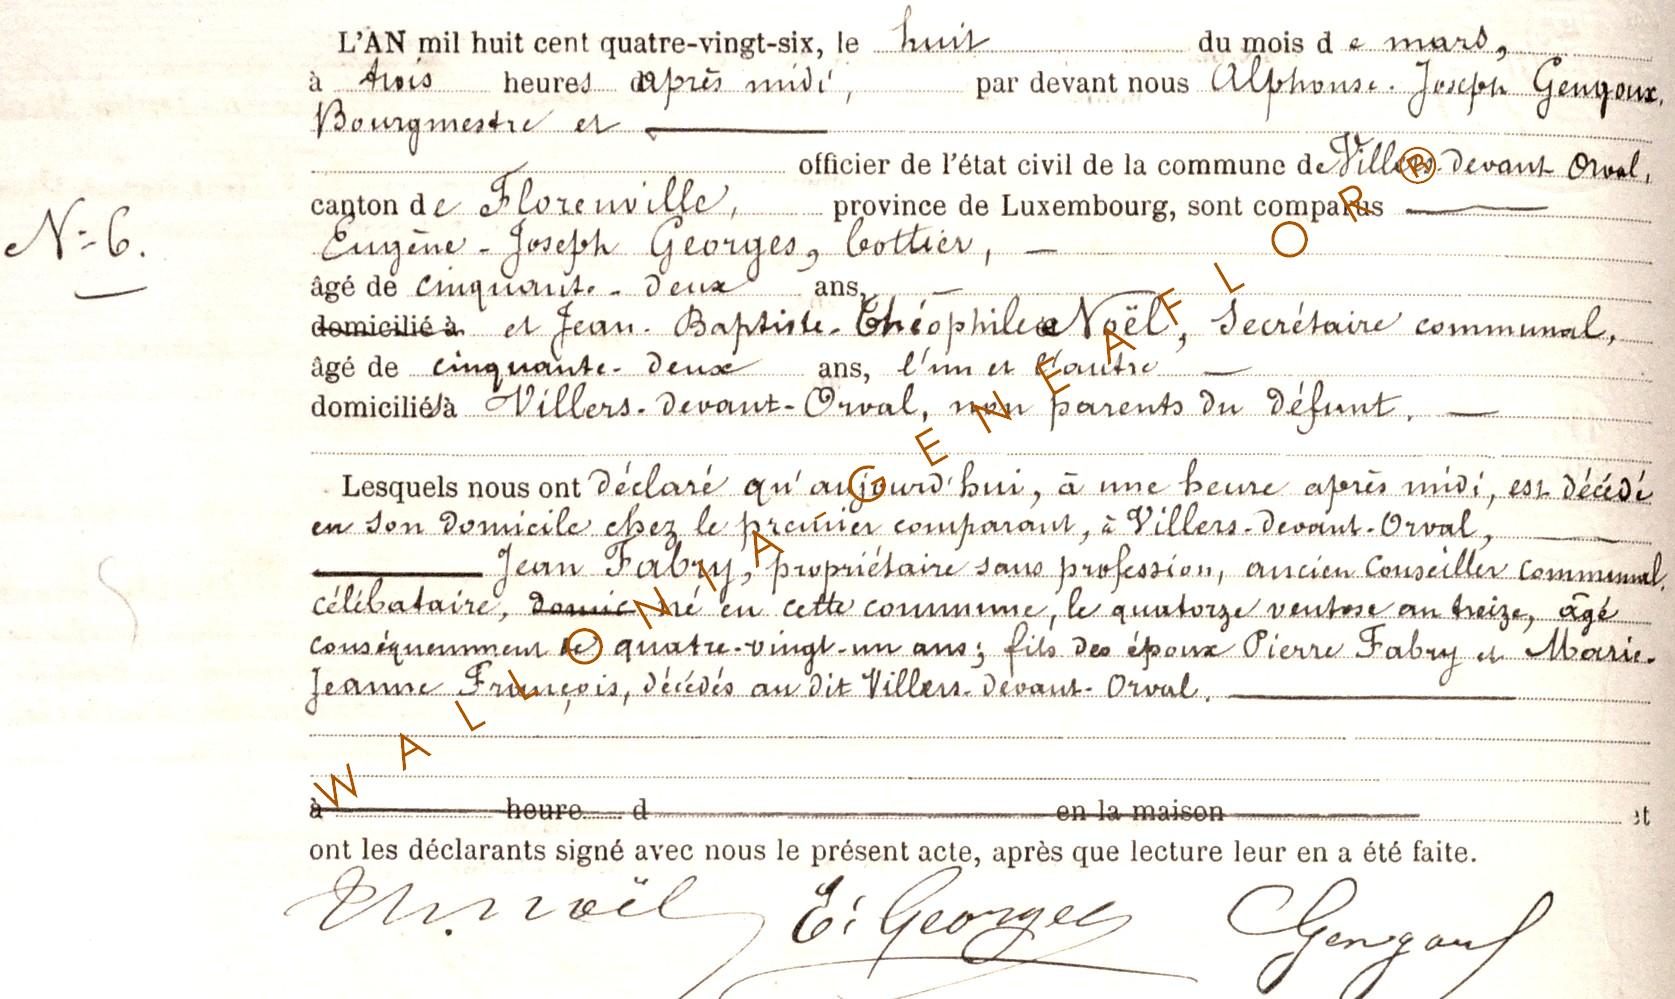 L'AN mil huit cent quatre-vingt-six, le huit du mois de mars,
à trois heures après midi, par devant nous Alphonse-Joseph Gengoux,
Bourgmestre et
officier de l'état civil de la commune de Villers-devant-Orval,
canton de Florenville, province de Luxembourg, sont comparus
N° 6.
Eugène-Joseph Georges, Cottier,
âgé de cinquante-deux ans,
domicilié à et Jean-Baptiste-Théophile Noël, Secrétaire communal,
âgé de cinquante-deux ans, l'un et l'autre
domiciliés à Villers-devant-Orval, non parents du défunt.
Lesquels nous ont déclaré qu'aujourd'hui, à une heure après midi, est décédé
en son domicile chez le premier comparant, à Villers-devant-Orval,
Jean Fabry, propriétaire sans profession, ancien Conseiller communal,
célibataire, domic né en cette commune, le quatorze ventose an treize, âgé
conséquemment de quatre-vingt-un ans; fils des époux Pierre Fabry et Marie-
Jeanne François, décédés au dit Villers-devant-Orval.
à heure d en la maison et
ont les déclarants signé avec nous le présent acte, après que lecture leur en a été faite.
Th. Noël E. Georges Gengoux
WALLONIA-GENEAFLOR®